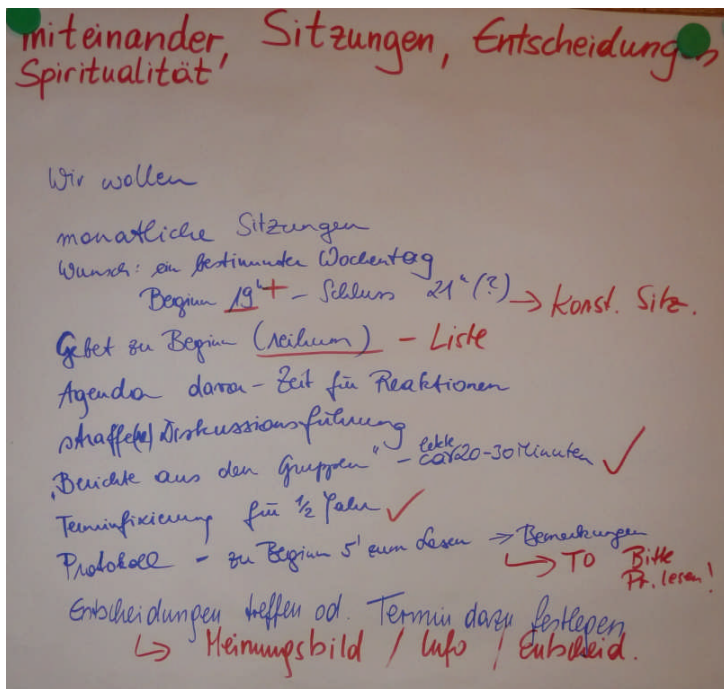 miteinander, Sitzungen, Entscheidungen
Spiritualität
Wir wollen
monatliche Sitzungen
Wunsch: ein bestimmter Wochentag
Beginn 19h + – Schluss 21h (?) → Konst. Sitz.
Gebet zu Beginn (reihum) – Liste
Agenda davor – Zeit für Reaktionen
straffe(re) Diskussionsführung
"Berichte aus den Gruppen" – letzte 20-30 Minuten ✓
Terminfixierung für 1/2 Jahr ✓
Protokoll – zu Beginn 5' zum Lesen ⇒ Bemerkungen
↳ TO Bitte
Pr. lesen!
Entscheidungen treffen od. Termin dazu festlegen
↳ Meinungsbild / Info / Entscheid.